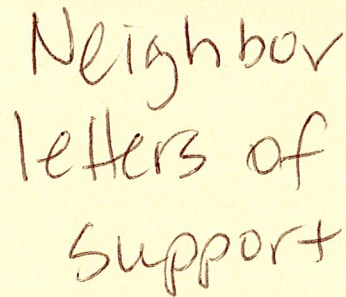 Neighbor
letters of
support